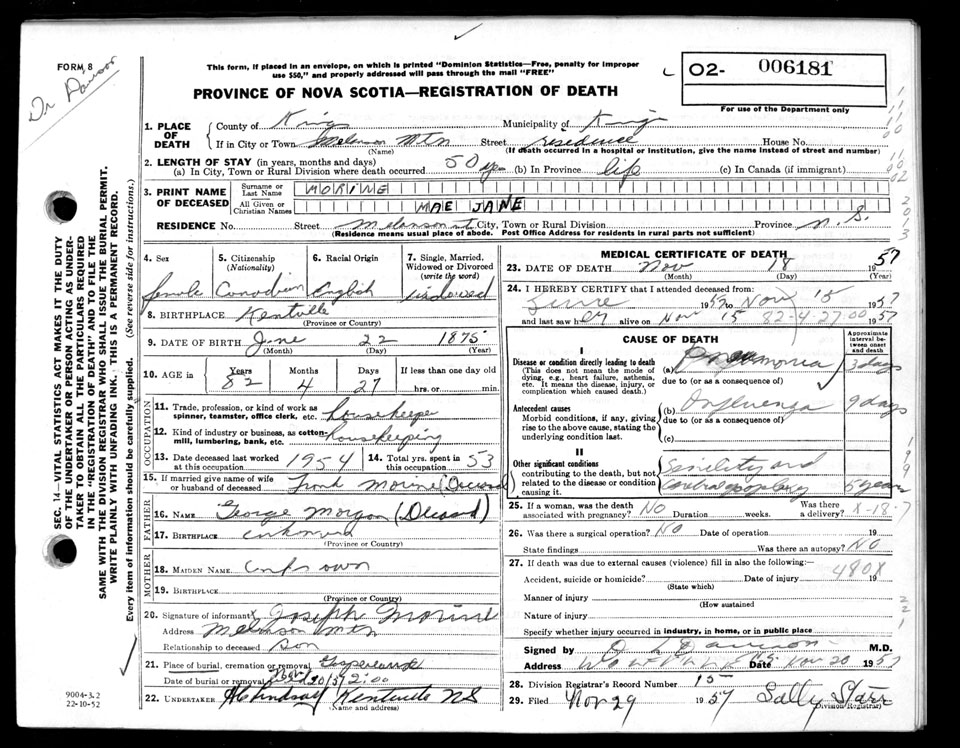 FORM 8
Dr
This form, if placed in an envelope, on which is printed "Dominion Statistics—Free, penalty for improper
use $50," and properly addressed will pass through the mail "FREE"
PROVINCE OF NOVA SCOTIA—REGISTRATION OF DEATH
O2- 006181
For use of the Department only
SEC. 14—VITAL STATISTICS ACT MAKES IT THE DUTY
OF THE UNDERTAKER OR PERSON ACTING AS UNDER-
TAKER TO OBTAIN ALL THE PARTICULARS REQUIRED
IN THE "REGISTRATION OF DEATH" AND TO FILE THE
SAME WITH THE DIVISION REGISTRAR WHO SHALL ISSUE THE BURIAL PERMIT.
WRITE PLAINLY WITH UNFADING INK. THIS IS A PERMANENT RECORD.
Every item of information should be carefully supplied. (See reverse side for instructions.)
1. PLACE OF DEATH County of Kings Municipality of Kings
If in City or Town Melanson Mtn Street residence House No.
(Name) (If death occurred in a hospital or institution, give the name instead of street and number)
2. LENGTH OF STAY (in years, months and days)
(a) In City, Town or Rural Division where death occurred 50 yrs (b) In Province life (c) In Canada (if immigrant)
3. PRINT NAME OF DECEASED Surname or Last Name MORINE
All Given or Christian Names MAE JANE
RESIDENCE No. Street Melanson Mt City, Town or Rural Division Province N.S.
(Residence means usual place of abode. Post Office Address for residents in rural parts not sufficient)
4. Sex 5. Citizenship (Nationality) 6. Racial Origin 7. Single, Married, Widowed or Divorced (write the word)
female Canadian English widowed
8. BIRTHPLACE Kentville
(Province or Country)
9. DATE OF BIRTH June 22 1875
(Month) (Day) (Year)
10. AGE in Years Months Days If less than one day old
82 4 27 hrs. or min.
OCCUPATION
11. Trade, profession, or kind of work as spinner, teamster, office clerk, etc. housekeeper
12. Kind of industry or business, as cotton-mill, lumbering, bank, etc. housekeeping
13. Date deceased last worked at this occupation 1954 14. Total yrs. spent in this occupation 53
15. If married give name of wife or husband of deceased Frank Morine (Deceased)
FATHER
16. NAME George Morgan (Deceased)
17. BIRTHPLACE unknown
(Province or Country)
MOTHER
18. MAIDEN NAME unknown
19. BIRTHPLACE
(Province or Country)
20. Signature of informant Joseph Morine
Address Melanson Mtn
Relationship to deceased Son
21. Place of burial, cremation or removal Gaspereaux
Date of burial or removal Nov 20/57 2:00
22. UNDERTAKER Lindsay Kentville NS
(Name and address)
9004-3.2
22-10-52
MEDICAL CERTIFICATE OF DEATH
23. DATE OF DEATH Nov 18 1957
(Month) (Day) (Year)
24. I HEREBY CERTIFY that I attended deceased from:
June 1957 to Nov 15 1957
and last saw her alive on Nov 15 82-4-27-00 1957
CAUSE OF DEATH
Approximate interval between onset and death
I
Disease or condition directly leading to death (a) Pneumonia 3 days
(This does not mean the mode of dying, e.g., heart failure, asthenia, etc. It means the disease, injury, or complication which caused death.)
due to (or as a consequence of)
Antecedent causes (b) Influenza 9 days
Morbid conditions, if any, giving rise to the above cause, stating the underlying condition last.
due to (or as a consequence of)
(c)
II
Other significant conditions Senility and
contributing to the death, but not related to the disease or condition causing it. 5 years
25. If a woman, was the death associated with pregnancy? No Duration weeks. Was there a delivery? X-18-7
26. Was there a surgical operation? No Date of operation 19
State findings Was there an autopsy? No
27. If death was due to external causes (violence) fill in also the following:—
Accident, suicide or homicide? Date of injury 480X 19
(State which)
Manner of injury
(How sustained
Nature of injury
Specify whether injury occurred in industry, in home, or in public place
Signed by M.D.
Address Date Nov 20 1957
28. Division Registrar's Record Number 15
29. Filed Nov 29 1957 Sally Starr
(Division Registrar)